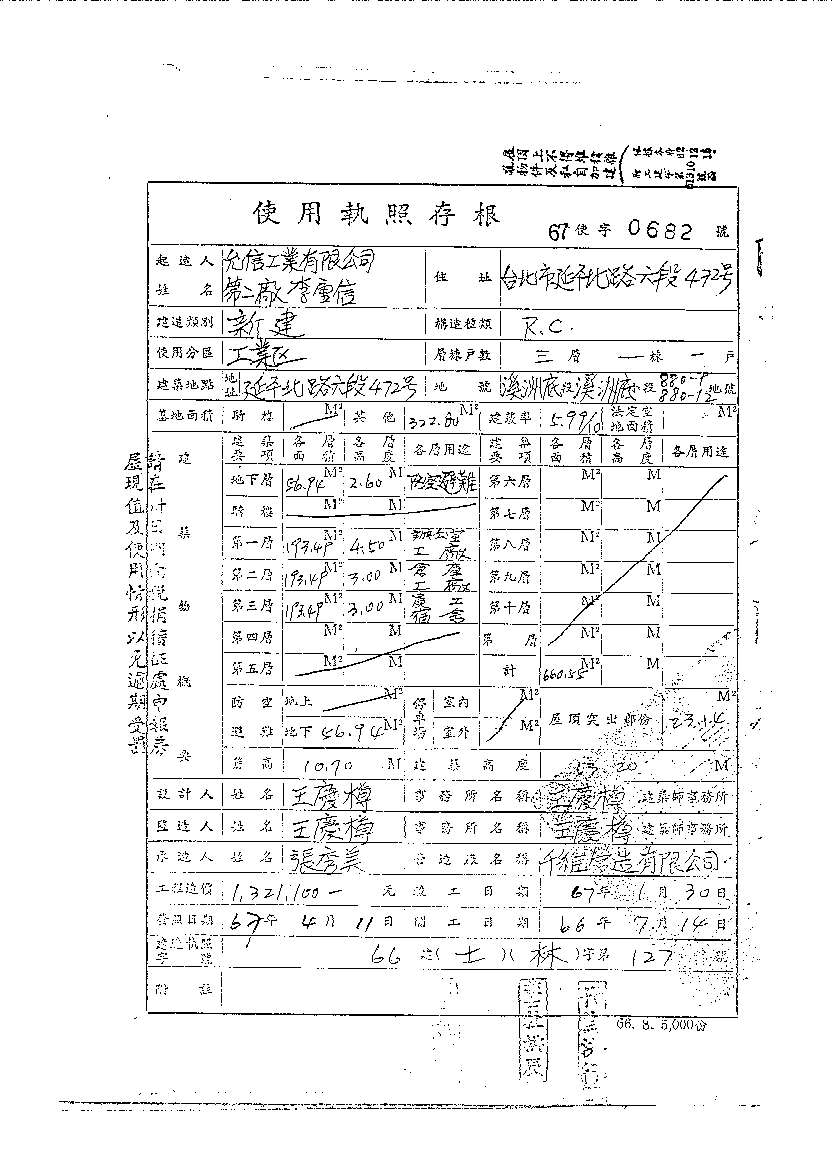 使用執照存根
67使字0682號
起造人姓名 允信工業有限公司第二廠 李重信 住址 台北市延平北路六段472號
建造類別 新建 構造種類 R.C.
使用分區 工業区 層棟戶數 三層 一棟 一戶
建築地點 地址 延平北路六段472号 地號 溪洲底段溪洲底小段 880-9 880-12 地號
基地面積 騎樓 M² 其他 322.80 M² 建蔽率 5.99/10 法定空地面積 M²
建築要項 各層面積 各層高度 各層用途 建築要項 各層面積 各層高度 各層用途
地下層 56.94 M² 2.60 M 防空避難 第六層 M² M
騎樓 M² M 第七層 M² M
第一層 193.49 M² 4.50 M 辦公室 工廠 第八層 M² M
第二層 193.49 M² 3.00 M 倉庫 工廠 第九層 M² M
第三層 193.49 M² 3.00 M 員工宿舍 第十層 M² M
第四層 M² M 第 層 M² M
第五層 M² M 計 660.55 M² M
防空避難 地上 M² 停車場 室內 M² 屋頂突出部份 23.14 M²
地下 56.94 M² 室外 M²
簷高 10.70 M 建築高度 20 M
設計人 姓名 王慶樽 事務所名稱 王慶樽 建築師事務所
監造人 姓名 王慶樽 事務所名稱 王慶樽 建築師事務所
承造人 姓名 張秀美 營造廠名稱 營造有限公司
工程造價 1,321,100- 元 竣工日期 67年1月30日
發照日期 67年4月11日 開工日期 66年7月14日
建造執照字號 66建(士)(林)字第127號
附註
建築物概要
屋現值及使用情形以免逾期受罰
66. 8. 5,000份